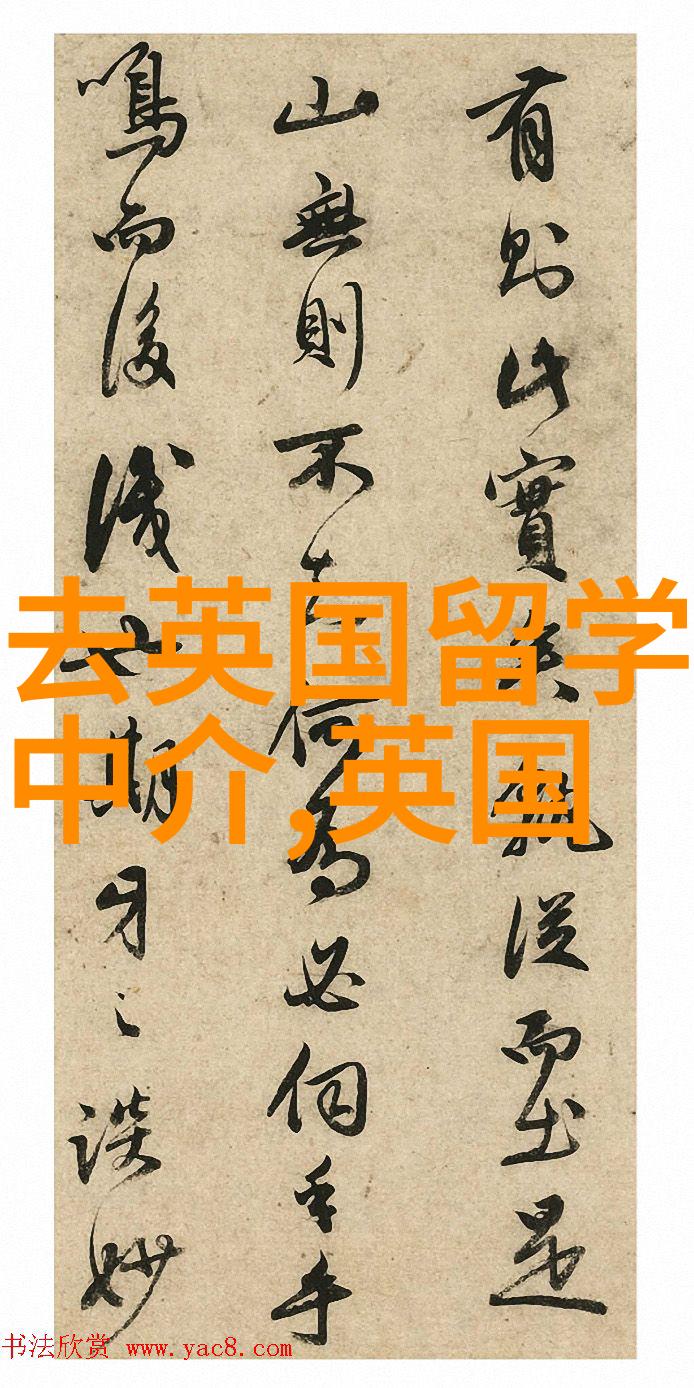 有則此實矣孰從而出是
山無則不何為必手
鳴而後識期牙之談妙
去英国留学
中介,英国
书法欣赏 www.yac8.com